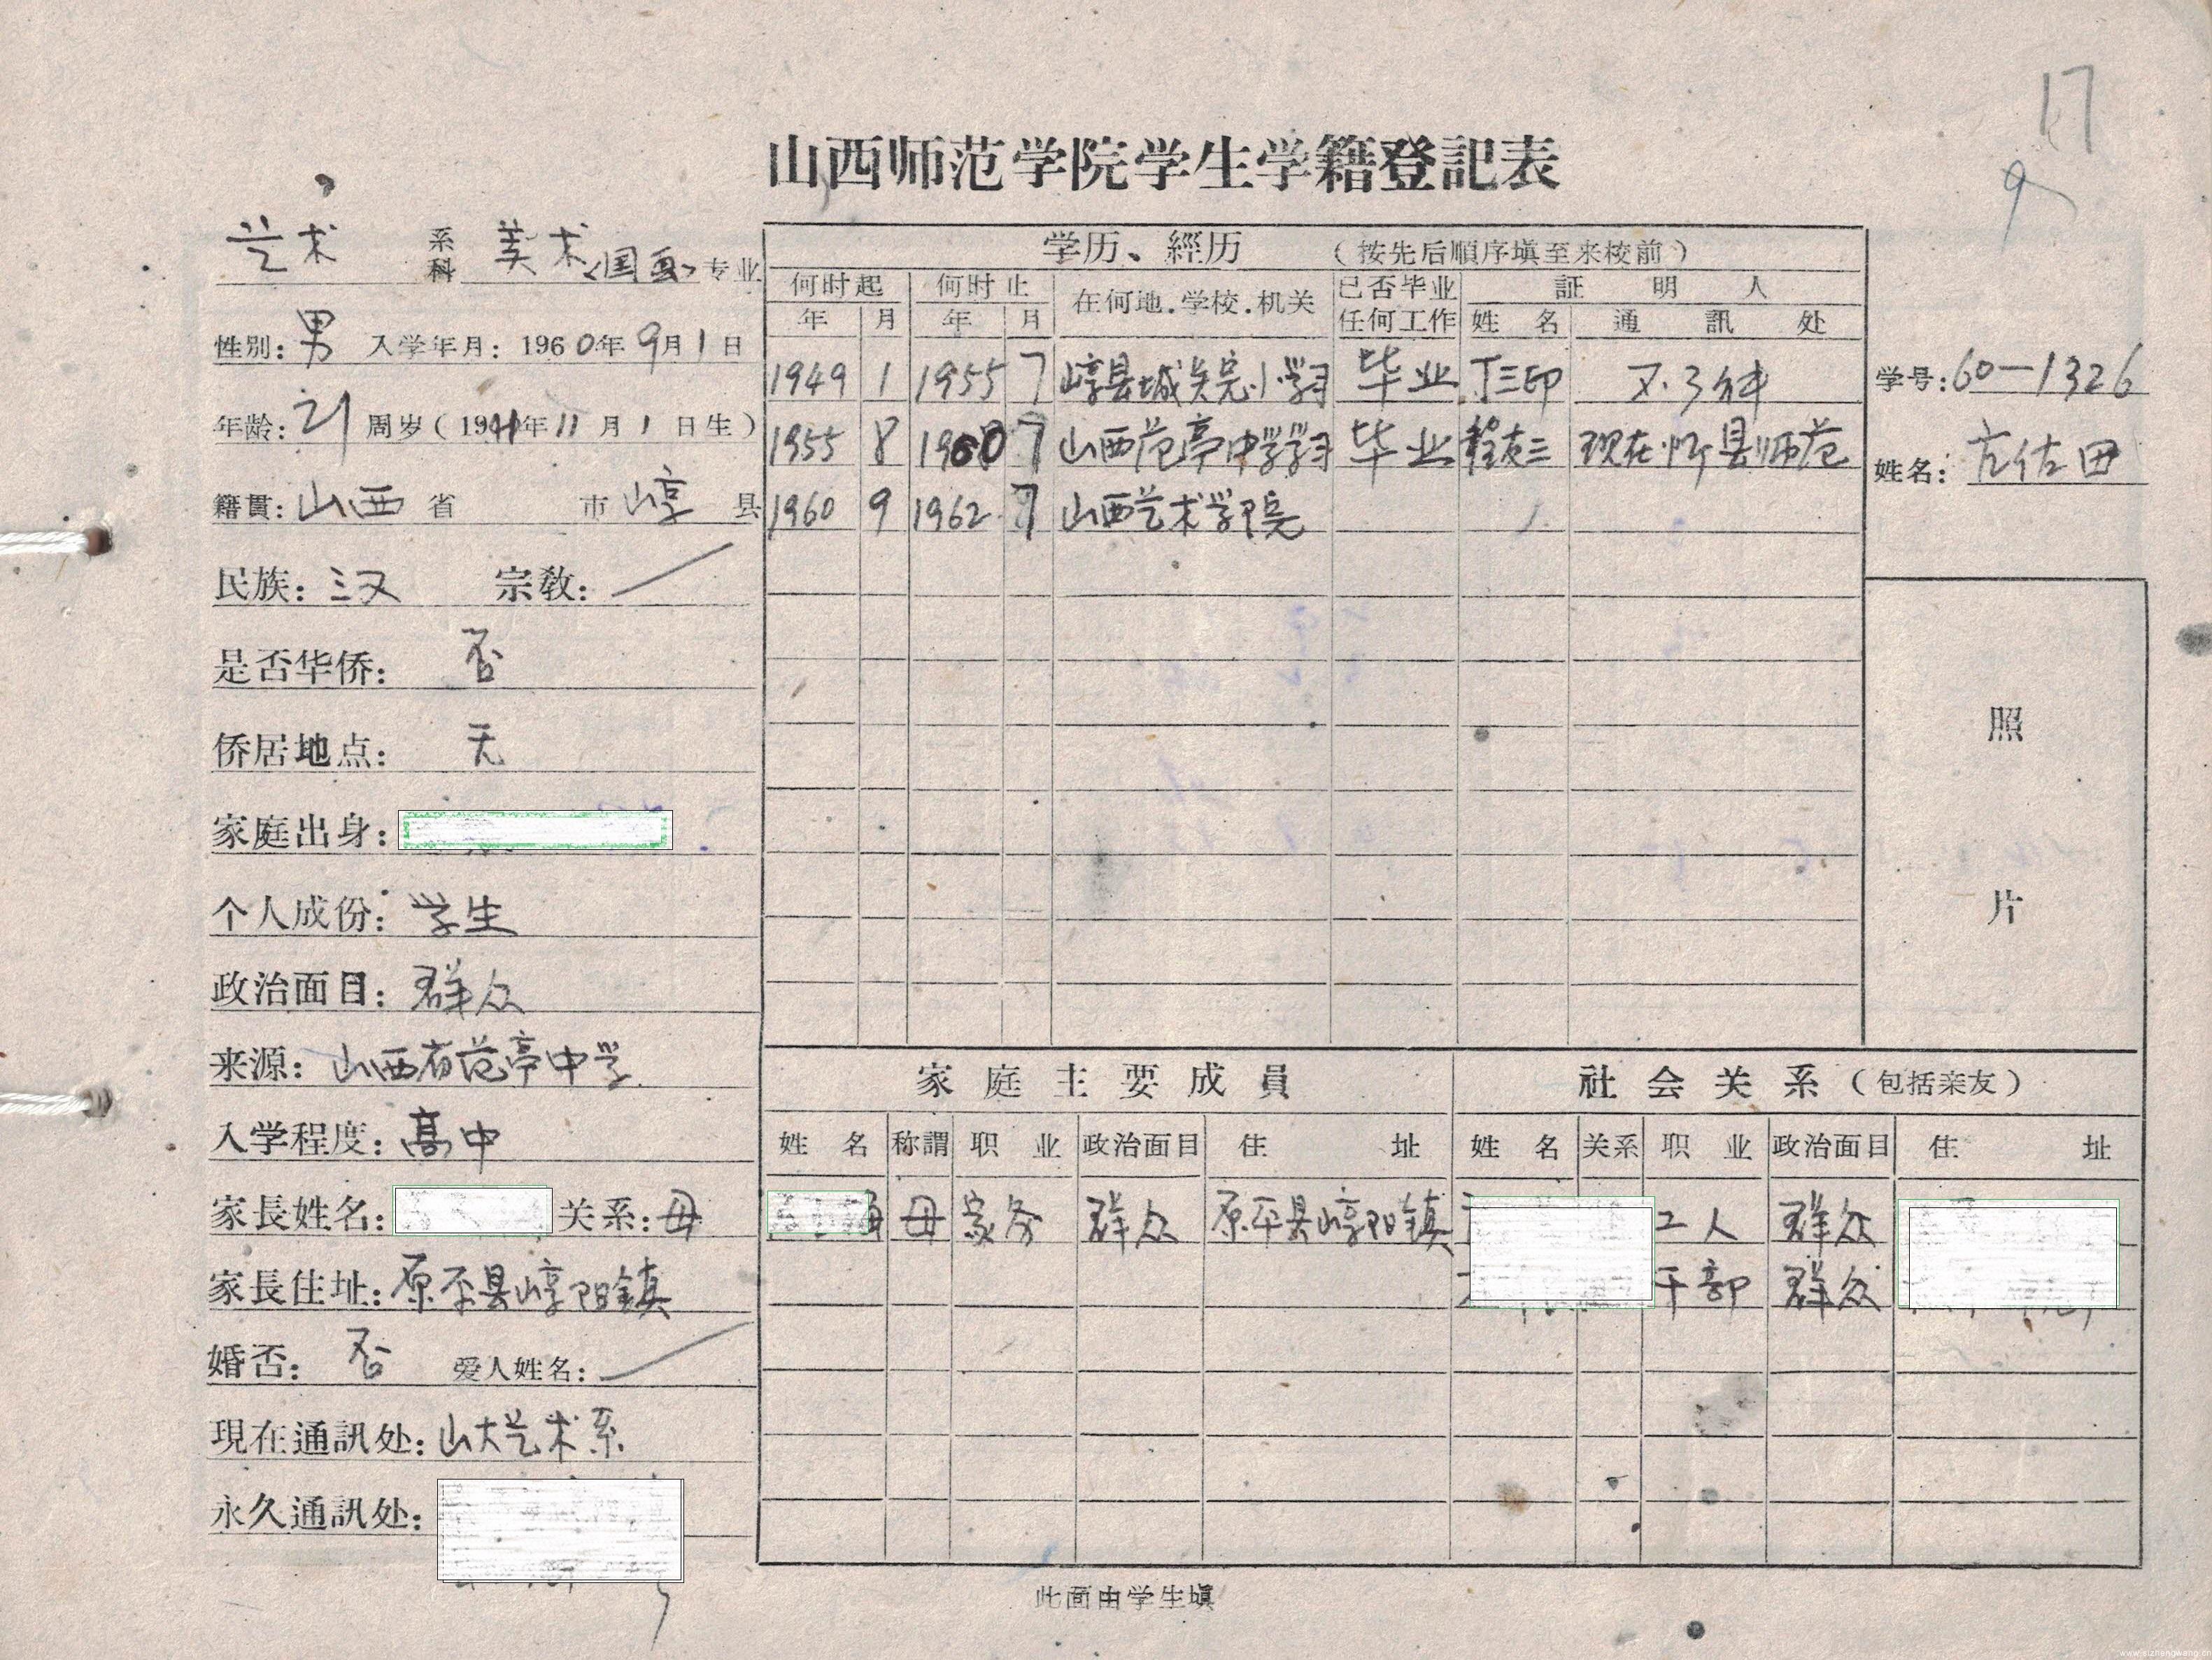 17
9
山西师范学院学生学籍登記表
艺术 系科 美术<国画>专业
性别:男 入学年月:1960年9月1日
年龄:21周岁(1941年11月1日生)
籍貫:山西省 市崞县
民族:汉 宗教:
是否华侨: 否
侨居地点: 无
家庭出身:
个人成份:学生
政治面目:群众
来源:山西省范亭中学
入学程度:高中
家長姓名: 关系:母
家長住址:原平县崞阳镇
婚否: 否 爱人姓名:
現在通訊处:山大艺术系
永久通訊处:
学历、經历 (按先后順序填至来校前)
何时起 何时止 在何地.学校.机关 已否毕业任何工作 証明人
年 月 年 月 姓名 通訊处
1949 1 1955 7 崞县城关完小学习 毕业 丁三印 不了解
1955 8 1960 7 山西范亭中学学习 毕业 程友三 现在忻县师范
1960 9 1962 7 山西艺术学院
学号:60-1326
姓名: 佐田
照
片
家庭主要成員 社会关系(包括亲友)
姓名 称謂 职业 政治面目 住址 姓名 关系 职业 政治面目 住址
母 家务 群众 原平县崞阳镇 工人 群众
干部 群众
此面由学生填